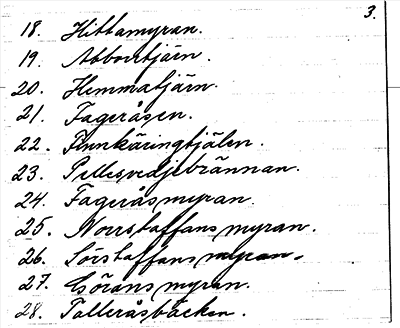 3.
18. Hittamyran.
19. Abborrtjärn.
20. Hemmatjärn.
21. Fageråsen.
22. Finnkäringtjälen.
23. Pellesvedjebrännan.
24. Fageråsmyran.
25. Norrstaffansmyran.
26. Sörstaffansmyran.
27. Göransmyran.
28. Talleråsbäcken.